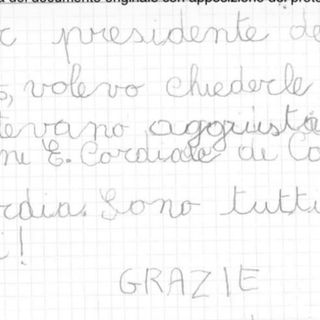 del documento originale con apposizione del prot
presidente de
volevo chiederle
aggiusta
E. Cordiale di Co
Sono tutti
!
GRAZIE